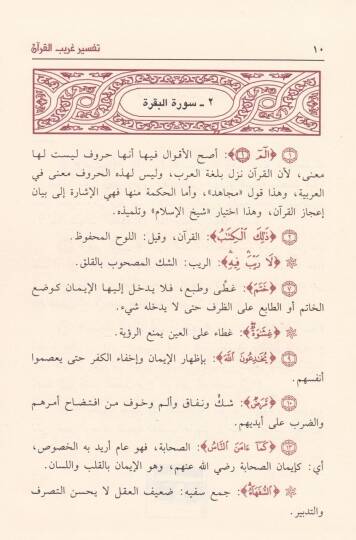 ١٠ تفسير غريب القرآن
٢ ـ سورة البقرة
١ ﴿الٓمٓ ١﴾: أصح الأقوال فيها أنها حروف ليست لها
معنى، لأن القرآن نزل بلغة العرب، وليس لهذه الحروف معنى في
العربية، وهذا قول «مجاهد»، وأما الحكمة منها فهي الإشارة إلى بيان
إعجاز القرآن، وهذا اختيار «شيخ الإسلام» وتلميذه.
٢ ﴿ذَٰلِكَ ٱلْكِتَٰبُ﴾: القرآن، وقيل: اللوح المحفوظ.
﴿لَا رَيْبَ فِيهِ﴾: الريب: الشك المصحوب بالقلق.
٧ ﴿خَتَمَ﴾: غطّى وطبع، فلا يدخل إليها الإيمان كوضع
الخاتم أو الطابع على الظرف حتى لا يدخله شيء.
﴿غِشَٰوَةٌ﴾: غطاء على العين يمنع الرؤية.
٩ ﴿يُخَٰدِعُونَ ٱللَّهَ﴾: بإظهار الإيمان وإخفاء الكفر حتى يعصموا
أنفسهم.
١٠ ﴿مَّرَضٌ﴾: شكٌ ونفاق وألم وخوف من افتضاح أمرهم
والضرب على أيديهم.
١٣ ﴿كَمَآ ءَامَنَ ٱلنَّاسُ﴾: الصحابة، فهو عام أريد به الخصوص،
أي: كإيمان الصحابة رضي الله عنهم، وهو الإيمان بالقلب واللسان.
﴿ٱلسُّفَهَآءُ﴾: جمع سفيه: ضعيف العقل لا يحسن التصرف
والتدبير.